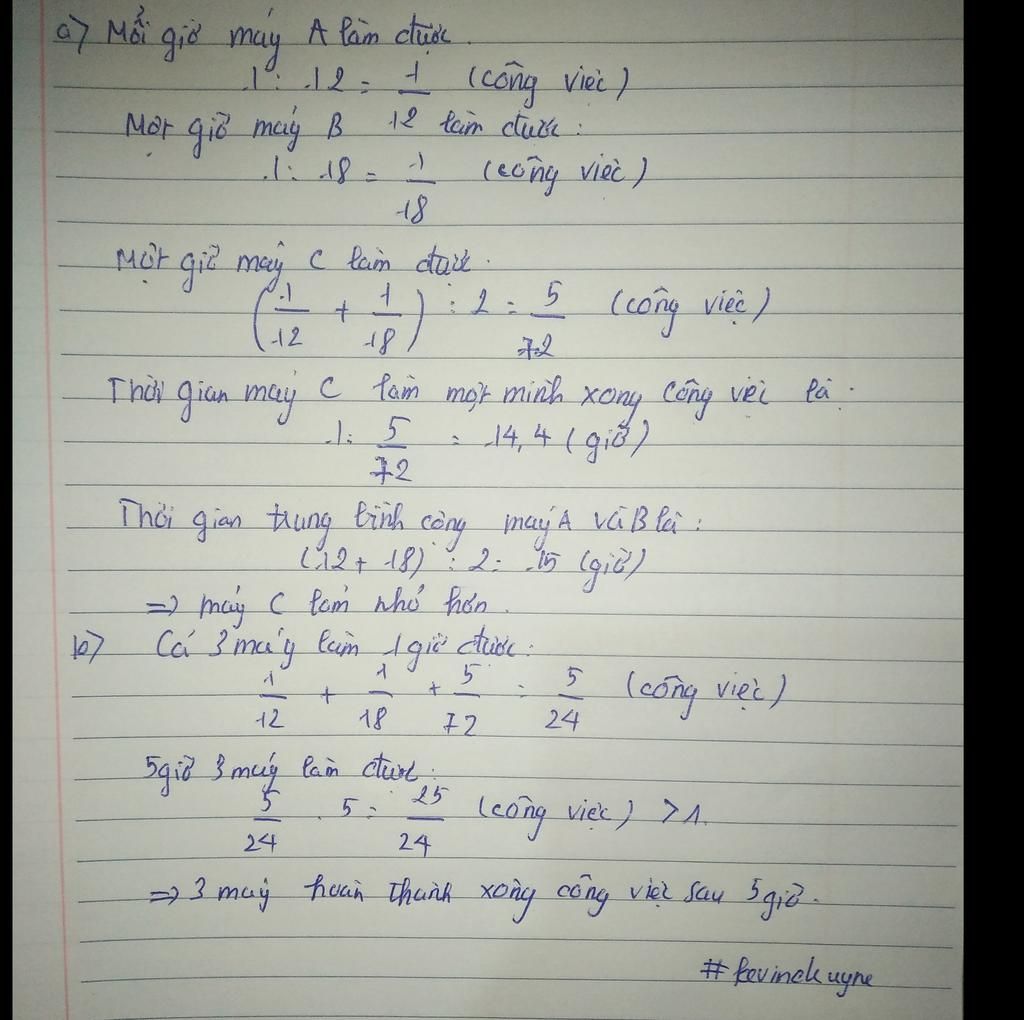 a) Mỗi giờ máy A làm được.
1 : 12 = 1/12 (công việc)
Một giờ máy B làm được:
1 : 18 = 1/18 (công việc)
Một giờ máy C làm được.
(1/12 + 1/18) : 2 = 5/72 (công việc)
Thời gian máy C làm một mình xong công việc là:
1 : 5/72 = 14,4 (giờ)
Thời gian trung bình công máy A và B là:
(12 + 18) : 2 = 15 (giờ)
=> máy C làm nhỏ hơn.
b) Cả 3 máy làm 1 giờ được:
1/12 + 1/18 + 5/72 = 5/24 (công việc)
5 giờ 3 máy làm được:
5/24 . 5 = 25/24 (công việc) > 1.
=> 3 máy hoàn thành xong công việc sau 5 giờ.